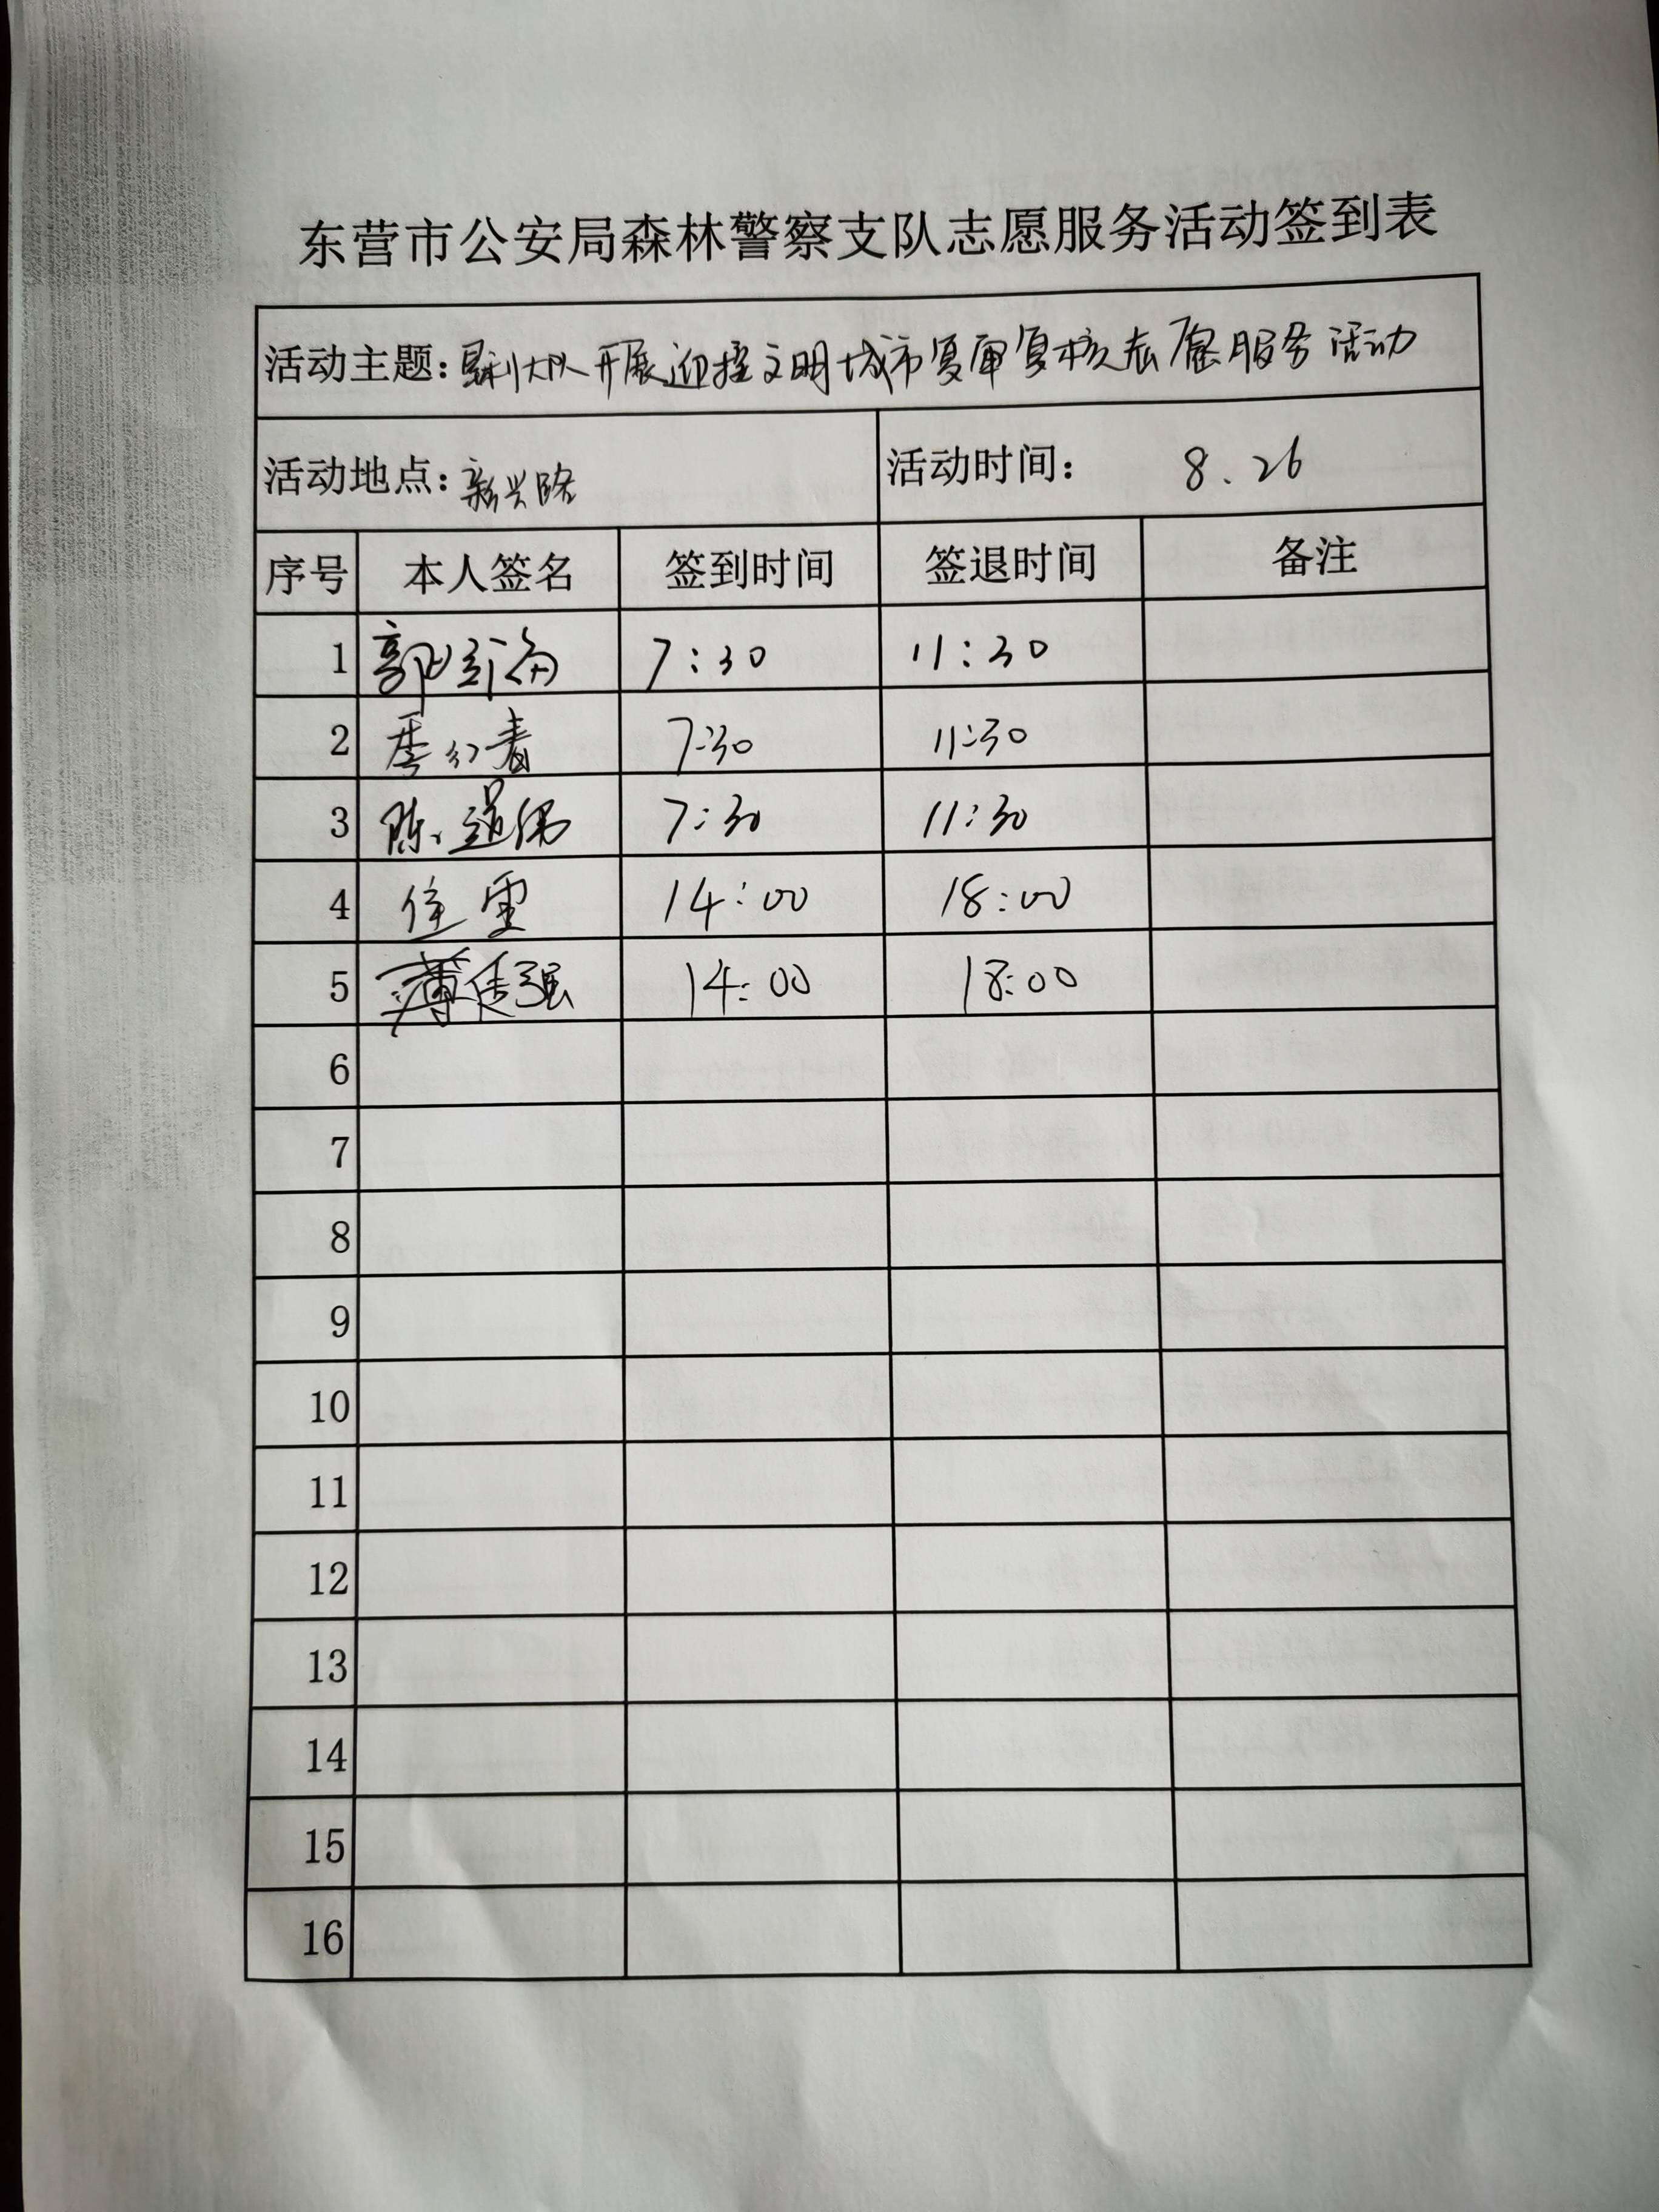 东营市公安局森林警察支队志愿服务活动签到表
活动主题：垦利大队开展迎接文明城市复审复核志愿服务活动
活动地点：新兴路 活动时间： 8.26
序号 本人签名 签到时间 签退时间 备注
1 郭 7:30 11:30
2 季红春 7:30 11:30
3 陈道 7:30 11:30
4 14:00 18:00
5 薄 强 14:00 18:00
6
7
8
9
10
11
12
13
14
15
16